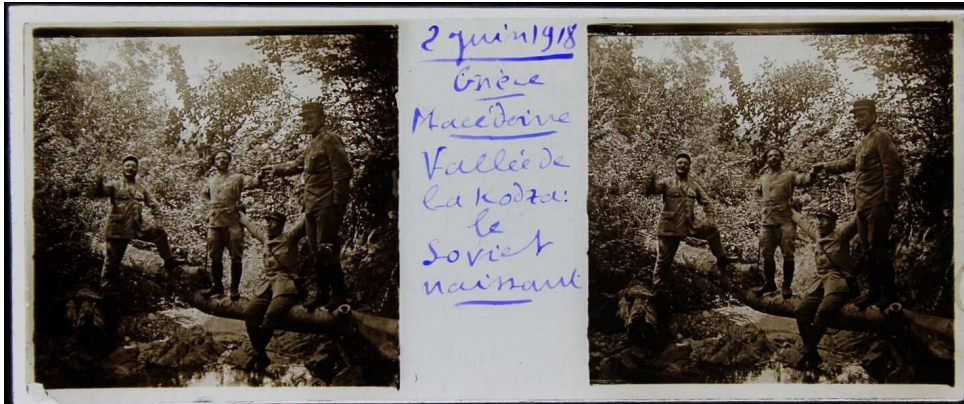 2 juin 1918
Grèce
Macédoine
Vallée de
la Kodza:
le
Soviet
naissant